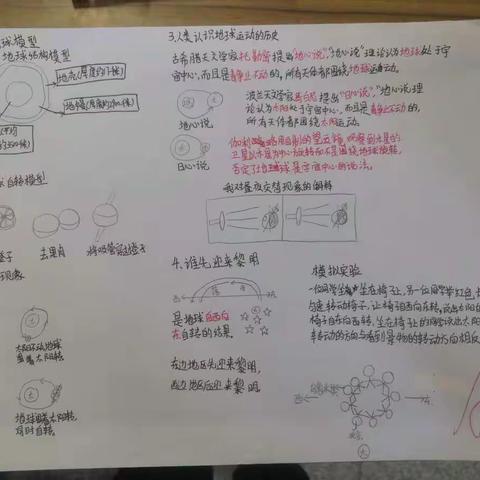 球模型
地球结构模型
地壳(厚度约17km)
地幔
自转模型
橙子
去果肉
将吸管穿过橙子
现象
太阳不动,地球
围着太阳转
地球围着太阳转,
同时自转。
3.人类认识地球运动的历史
古希腊天文学家托勒密提出"地心说","地心说"理论认为地球处于宇
宙中心,而且是静止不动的,所有天体都围绕地球运动。
地心说
波兰天文学家哥白尼提出"日心说","地心说理
论认为太阳处于宇宙中心,而且是静止不动的,
所有天体都围绕太阳运动。
日心说
伽利略用自制的望远镜,观察到木星的
卫星以木星为中心旋转而不是围绕地球旋转,
否定了地球是宇宙中心的说法。
我对昼夜交替现象的解释
4.谁先迎来黎明
西
东
是地球自西向
东自转的结果
东边地区先迎来黎明,
西边地区后迎来黎明。
模拟实验
一位同学坐在椅子上,另一位同学举红色
匀速转动椅子,让椅子自西向东转,
椅子自东向西转,坐在椅子上的同学说出太阳
转动的方向与看到景物的转动方向相反
西
东
太